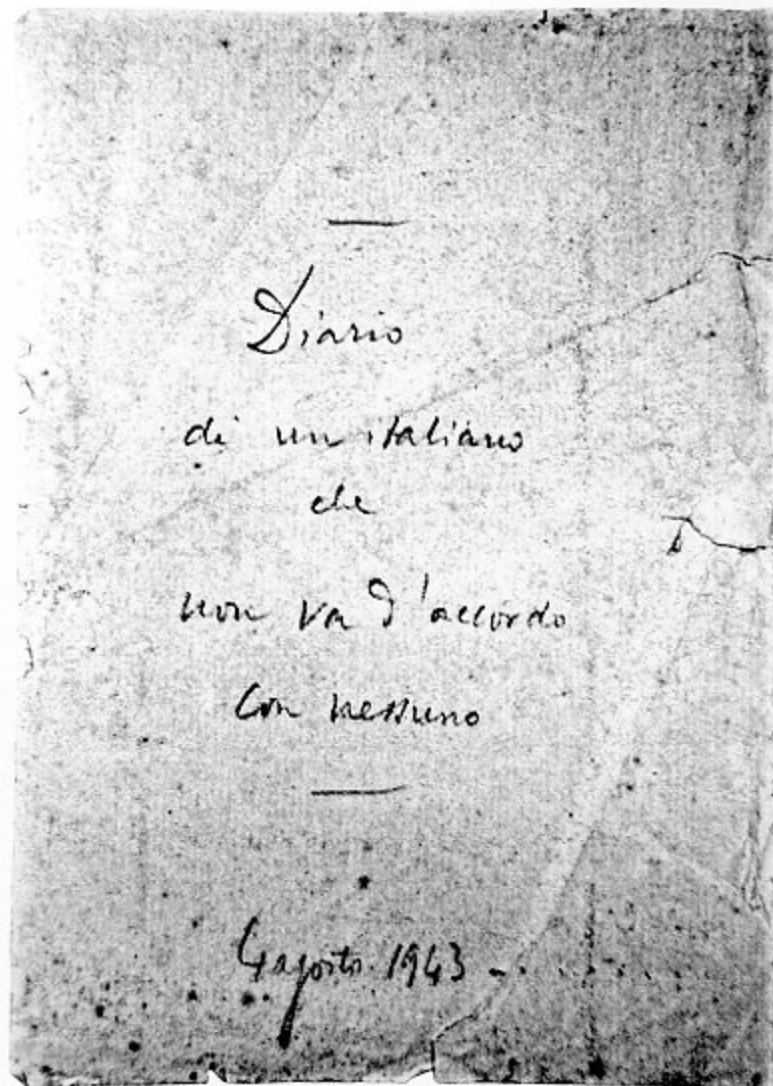 Diario
di un italiano
che
non va d'accordo
con nessuno
4 agosto 1943 - . . . . . . .